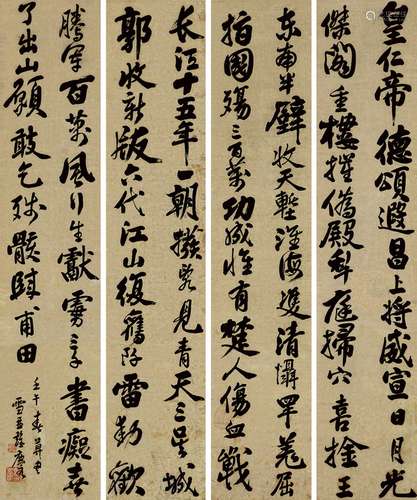 皇仁帝德頌遐昌上將威宣日月光
傑閣重樓摧偽殿犁庭掃穴喜擒王
東南半壁收天塹淮海雙清懾罕羌屈
指國殤三百萬功成惟有楚人傷血戰
長江十五年一朝撥霧見青天三吳城
郭收新版六代江山復舊阡雷動歡
騰軍百萬風行生獻虜三千書癡喜
了出山願敢乞殘骸歸甫田
壬午春
雪琴彭玉麐